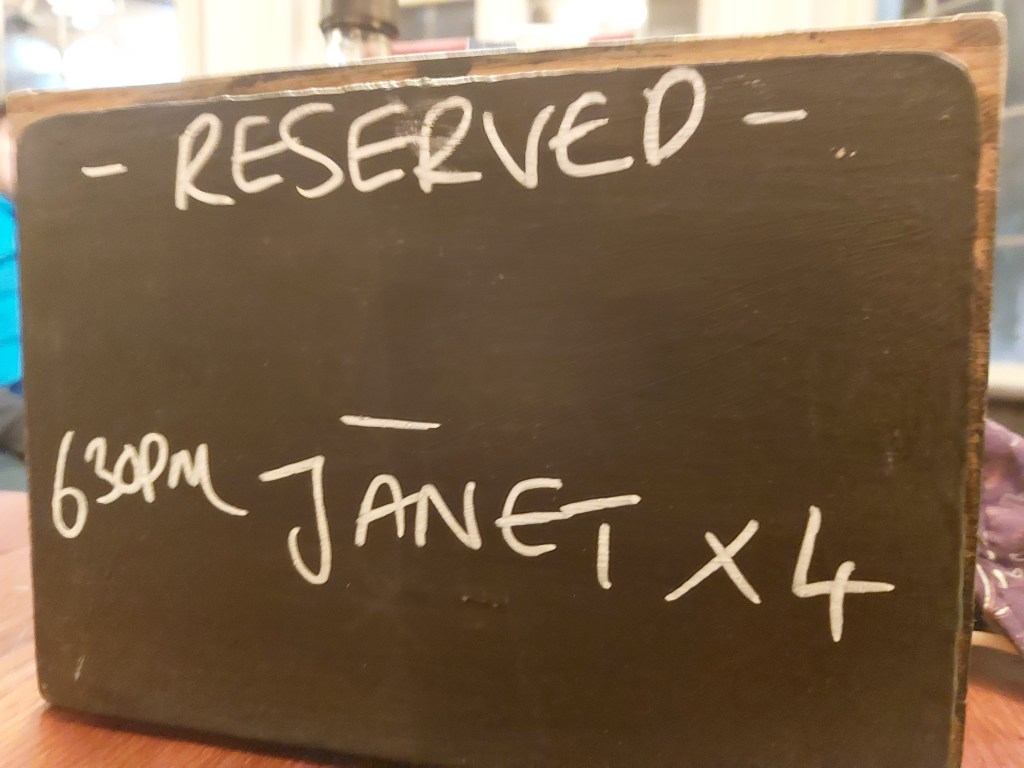 - RESERVED -
-
630PM JANET x4